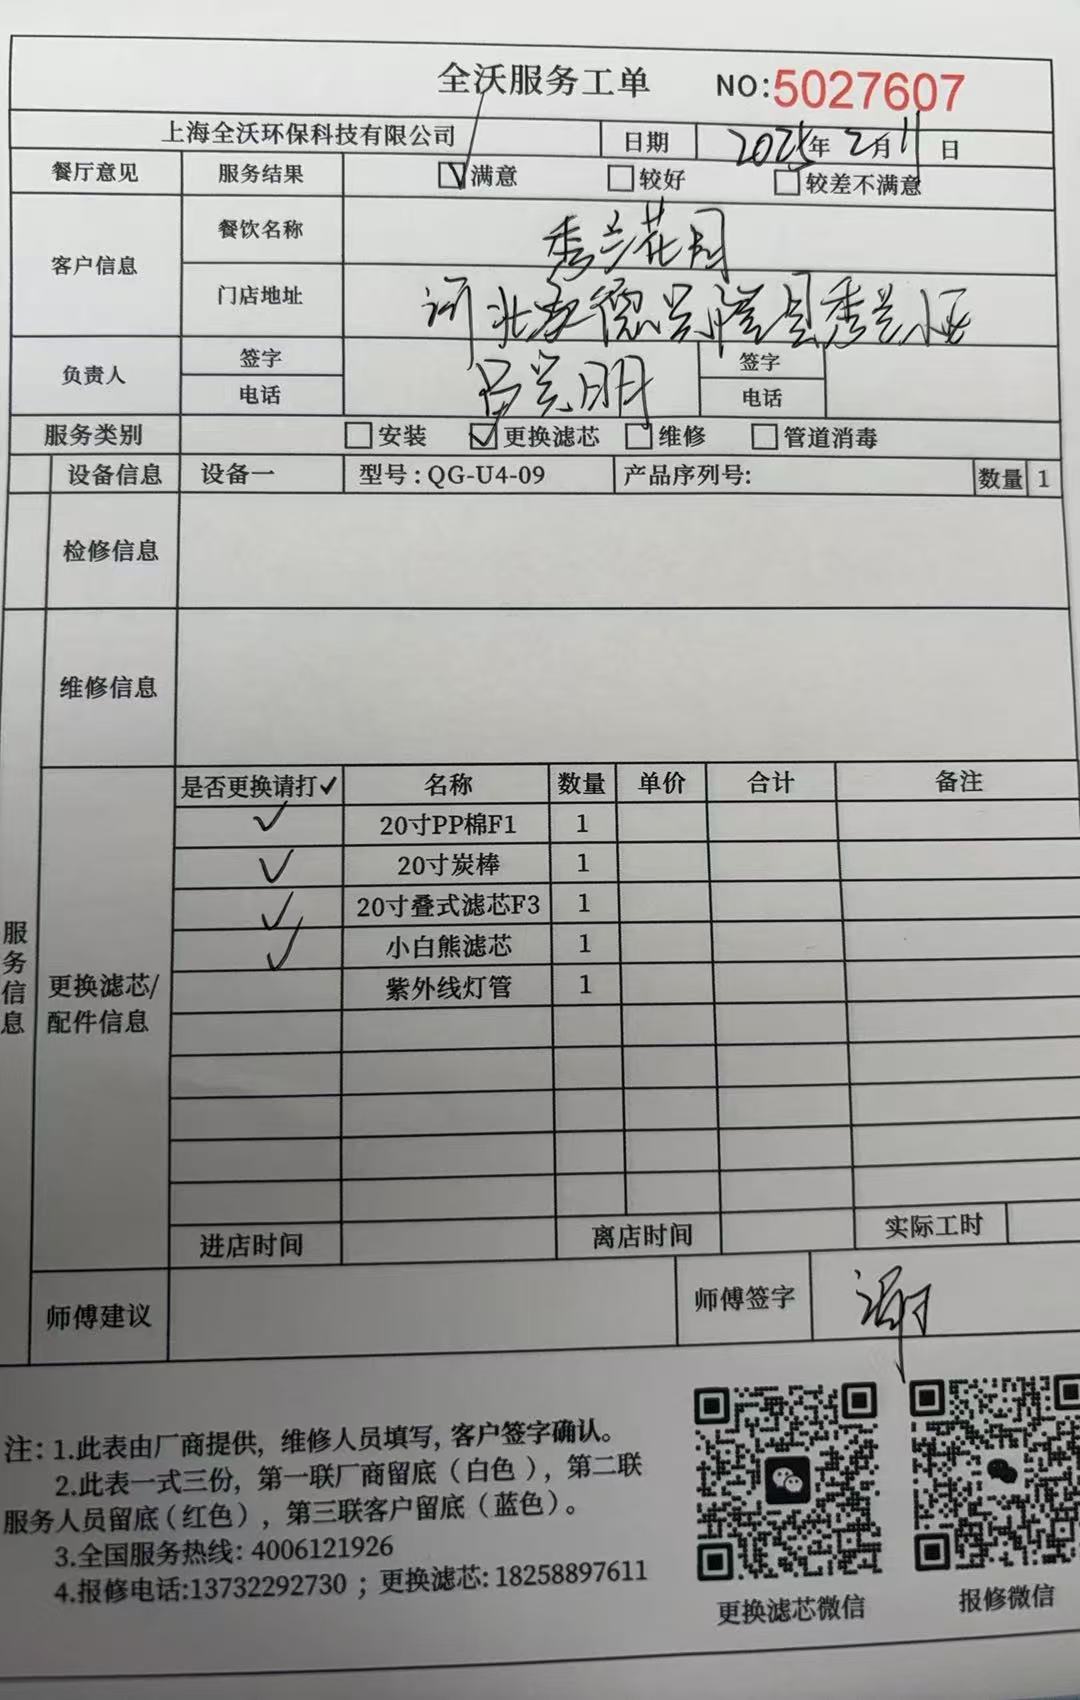 全沃服务工单 NO:5027607
上海全沃环保科技有限公司 日期 2025年2月11日
餐厅意见 服务结果 ☑满意 □较好 □较差不满意
客户信息 餐饮名称 秀兰花园
门店地址 河北承德兴隆县秀兰小区
负责人 签字 吕兴明 签字
电话 电话
服务类别 □安装 ☑更换滤芯 □维修 □管道消毒
设备信息 设备一 型号:QG-U4-09 产品序列号: 数量 1
检修信息
维修信息
服务信息
更换滤芯/配件信息
是否更换请打✓ 名称 数量 单价 合计 备注
✓ 20寸PP棉F1 1
✓ 20寸炭棒 1
✓ 20寸叠式滤芯F3 1
✓ 小白熊滤芯 1
紫外线灯管 1
进店时间 离店时间 实际工时
师傅建议 师傅签字 谢
注：1.此表由厂商提供，维修人员填写，客户签字确认。
2.此表一式三份，第一联厂商留底（白色），第二联
服务人员留底（红色），第三联客户留底（蓝色）。
3.全国服务热线：4006121926
4.报修电话:13732292730 ；更换滤芯: 18258897611
更换滤芯微信 报修微信